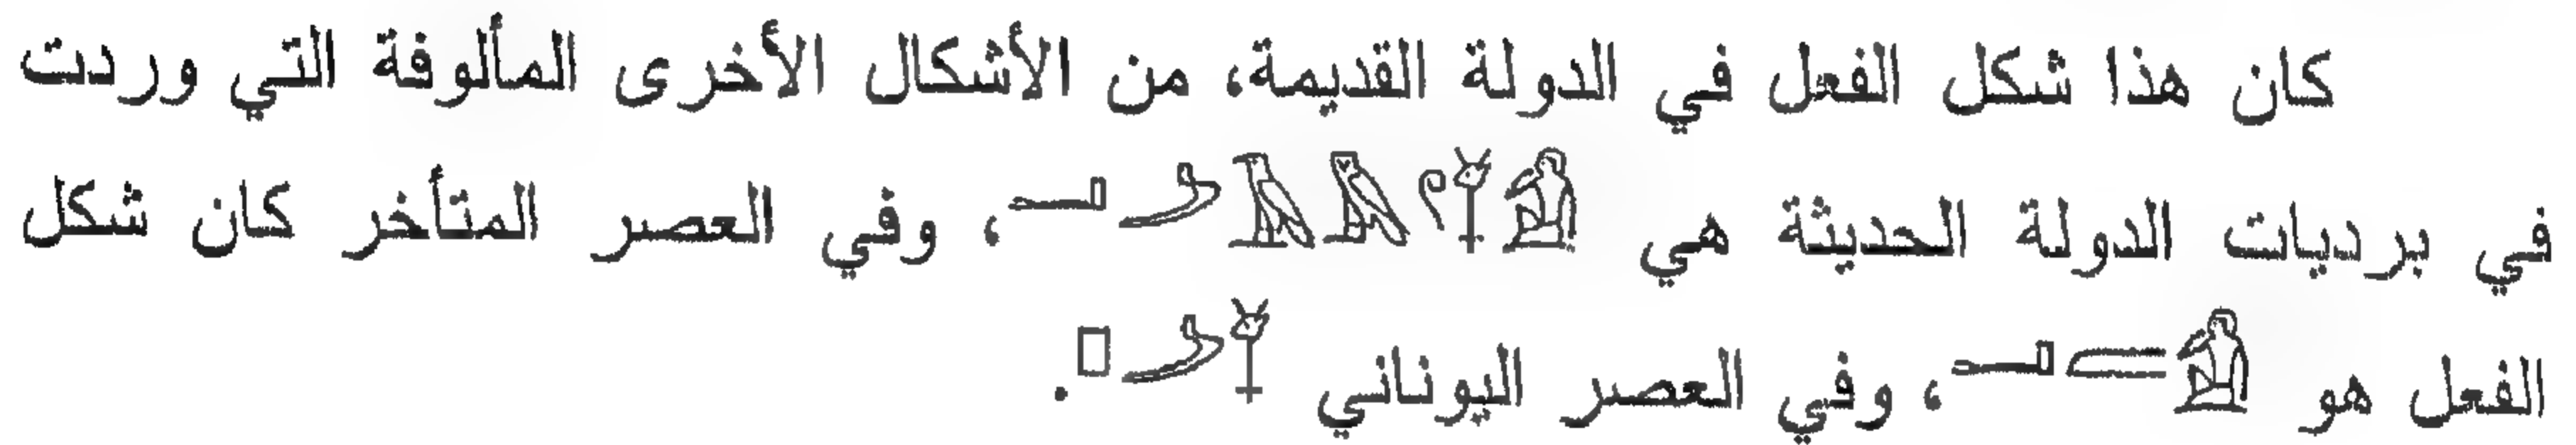 كان هذا شكل الفعل في الدولة القديمة، من الأشكال الأخرى المألوفة التي وردت
في برديات الدولة الحديثة هي 𓌳𓅓𓄿، وفي العصر المتأخر كان شكل
الفعل هو، وفي العصر اليوناني.